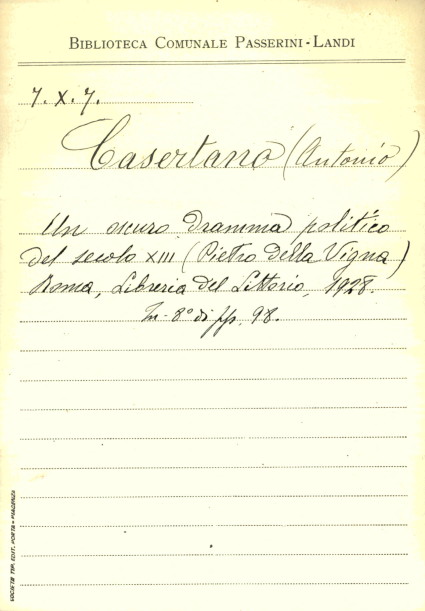 BIBLIOTECA COMUNALE PASSERINI-LANDI
7.X.7.
Casertano (Antonio)
Un oscuro dramma politico
del secolo XIII (Pietro della Vigna)
Roma, Libreria del Littorio, 1928.
In-8° di pp. 98.
SOCIETÀ TIP. EDIT. PORTA - PIACENZA